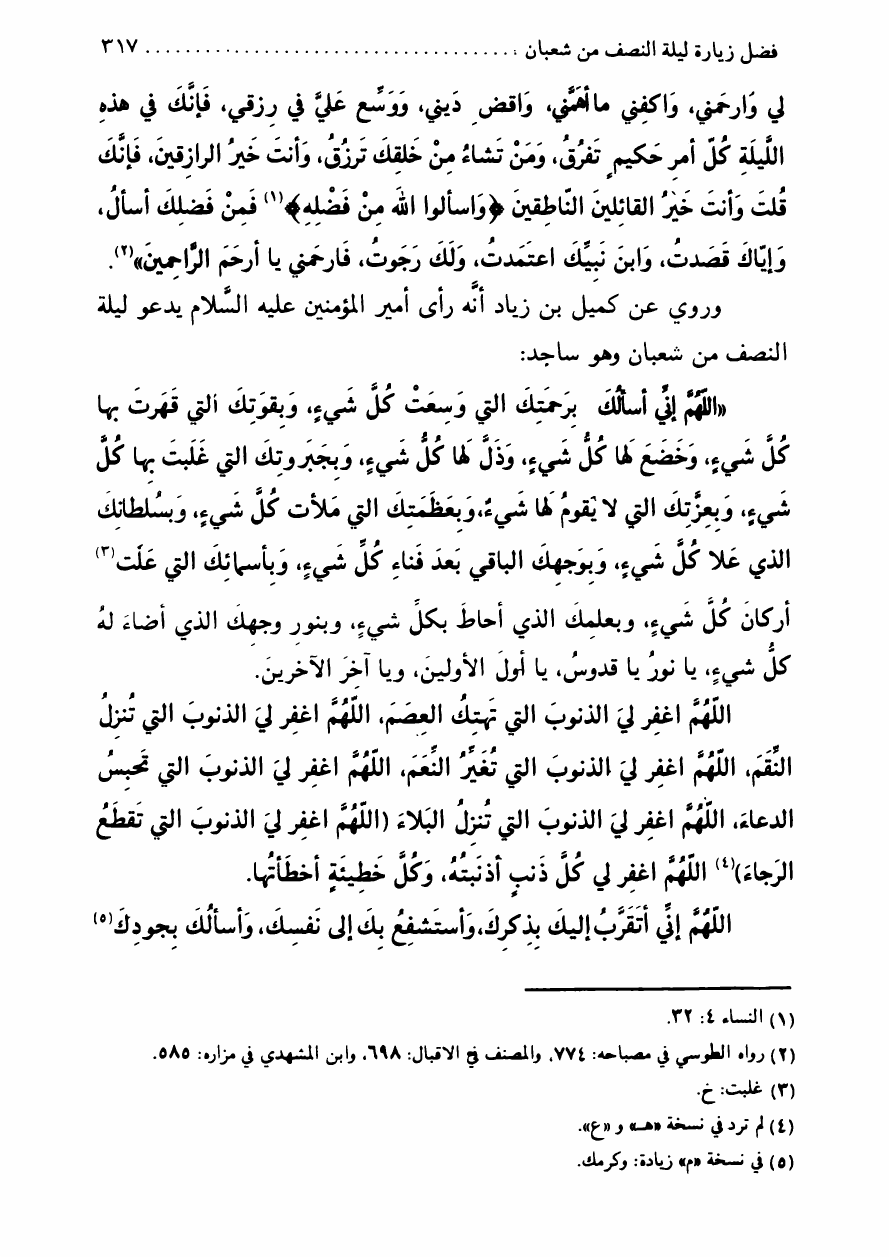 فضل زيارة ليلة النصف من شعبان ..................................... ٣١٧
لي وَارحَمني، وَاكفِني ما أهَمَّني، وَاقضِ دَيني، وَوَسِّع عَليَّ في رِزقي، فَإنَّكَ في هذهِ
اللَّيلَةِ كُلّ أمرٍ حَكيمٍ تَفرُقُ، وَمَنْ تَشاءُ مِنْ خَلقِكَ تَرزُقُ، وَأنتَ خَيرُ الرازقينَ، فَإنَّكَ
قُلتَ وَأنتَ خَيْرُ القائلينَ النّاطِقينَ ﴿وَاسألوا اللهَ مِنْ فَضْلِهِ﴾(١) فَمِنْ فَضلِكَ أسألُ،
وَإيّاكَ قَصَدتُ، وَابنَ نَبيِّكَ اعتَمَدتُ، وَلَكَ رَجَوتُ، فَارحَمني يا أرحَمَ الرَّاحِمينَ»(٢).
وروي عن كميل بن زياد أنَّه رأى أمير المؤمنين عليه السَّلام يدعو ليلة
النصف من شعبان وهو ساجد:
«اللَّهُمَّ إنِّي أسألُكَ بِرَحمَتِكَ التي وَسِعَتْ كُلَّ شَيءٍ، وَبِقوَتِكَ التي قَهَرتَ بها
كُلَّ شَيءٍ، وَخَضَعَ لَها كُلُّ شَيءٍ، وَذَلَّ لَها كُلُّ شَيءٍ، وَبِجَبَروتِكَ التي غَلَبتَ بِها كُلَّ
شَيءٍ، وَبِعِزَّتِكَ التي لا يَقومُ لَها شَيءٌ، وَبِعَظَمَتِكَ التي مَلأت كُلَّ شَيءٍ، وَبسُلطانِكَ
الذي عَلا كُلَّ شَيءٍ، وَبِوَجهِكَ الباقي بَعدَ فَناءِ كُلِّ شَيءٍ، وَبِأسمائِكَ التي عَلَت(٣)
أركانَ كُلَّ شَيءٍ، وبعلمِكَ الذي أحاطَ بكلِّ شيءٍ، وبنورِ وجهِكَ الذي أضاءَ لهُ
كلُّ شيءٍ، يا نورُ يا قدوسُ، يا أولَ الأولينَ، ويا آخِرَ الآخرينَ.
اللّهُمَّ اغفِر ليَ الذنوبَ التي تَهتِكُ العِصَمَ، اللّهُمَّ اغفِر ليَ الذنوبَ التي تُنزِلُ
النِّقَمَ، اللّهُمَّ اغفِر ليَ الذنوبَ التي تُغَيِّرُ النِّعَمَ، اللّهُمَّ اغفِر ليَ الذنوبَ التي تَحبِسُ
الدعاءَ، اللّهُمَّ اغفِر ليَ الذنوبَ التي تُنزِلُ البَلاءَ (اللّهُمَّ اغفِر ليَ الذنوبَ التي تَقطَعُ
الرَجاءَ)(٤) اللّهُمَّ اغفِر لي كُلَّ ذَنبٍ أذنَبتُهُ، وَكُلَّ خَطيئَةٍ أخطَأتُها.
اللّهُمَّ إنِّي أتَقَرَّبُ إليكَ بِذِكرِكَ، وَأستَشفِعُ بِكَ إلى نَفسِكَ، وَأسألُكَ بِجودِكَ(٥)
(١) النساء ٤: ٣٢.
(٢) رواه الطوسي في مصباحه: ٧٧٤، والمصنف في الاقبال: ٦٩٨، وابن المشهدي في مزاره: ٥٨٥.
(٣) غلبت: خ.
(٤) لم ترد في نسخة «هـ» و «ع».
(٥) في نسخة «م» زيادة: وكرمك.